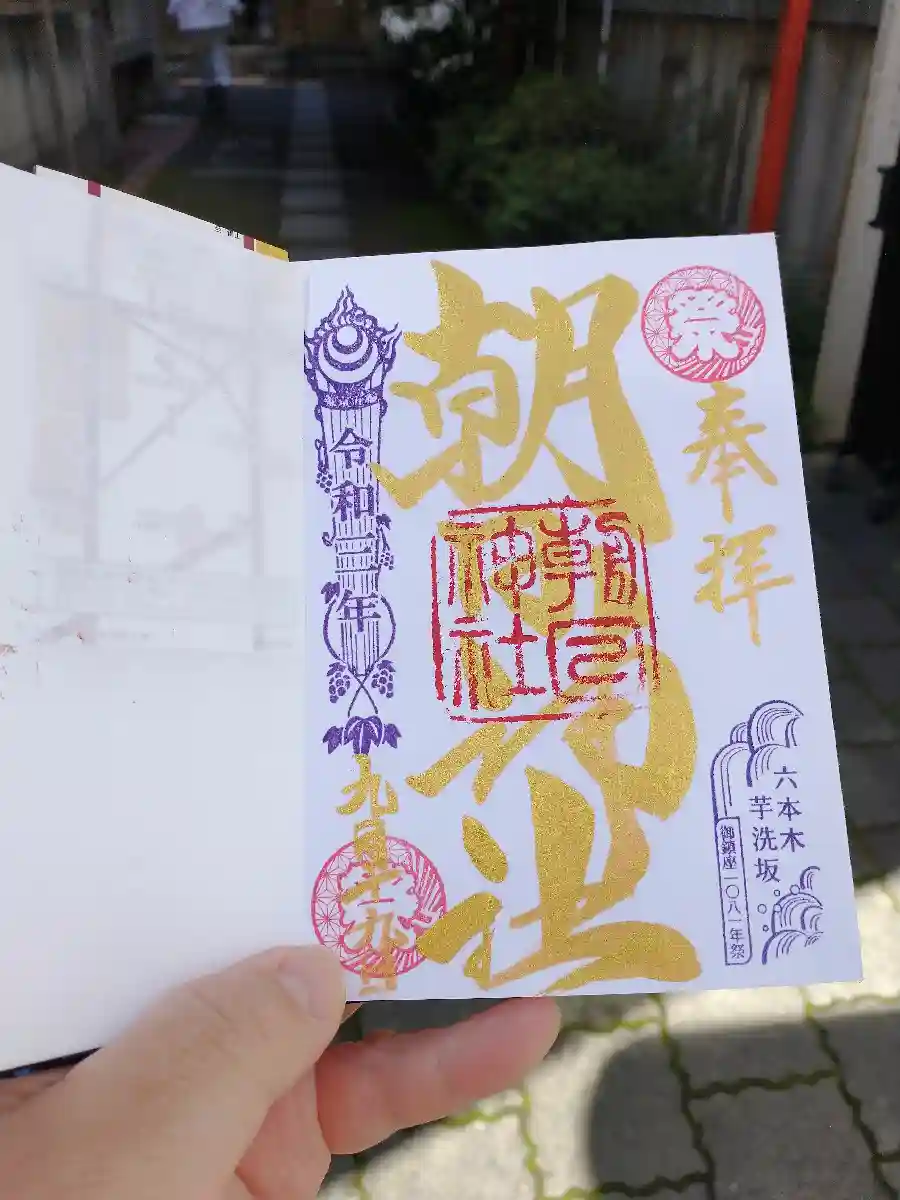 祭
奉拝
六本木
芋洗坂
御鎮座一〇八一年祭
朝日神社
朝日
神社
令和三年
九月十九日